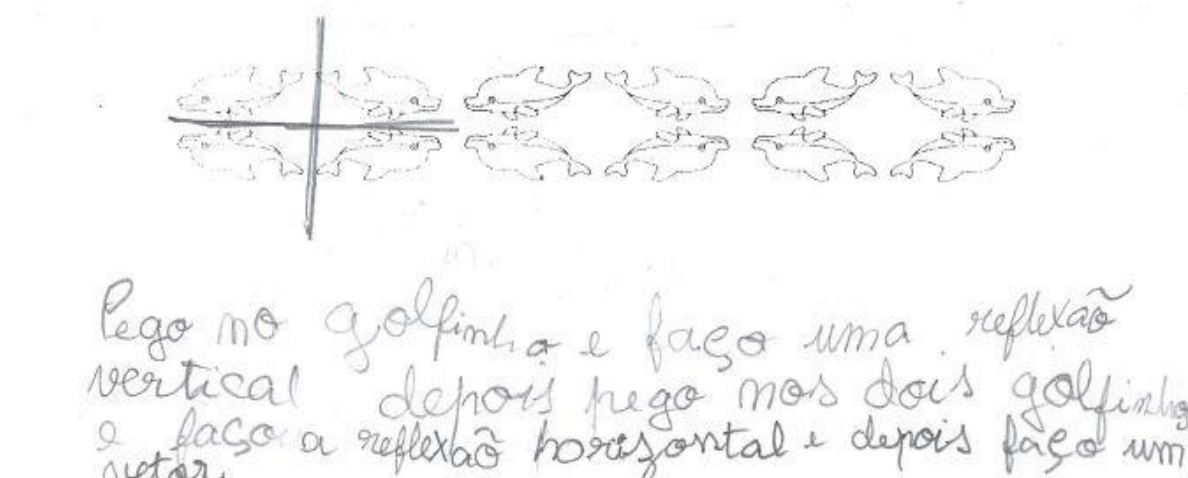 Pego no golfinho e faço uma reflexão
vertical depois pego nos dois golfinhos
e faço a reflexão horizontal e depois faço um
vetor.